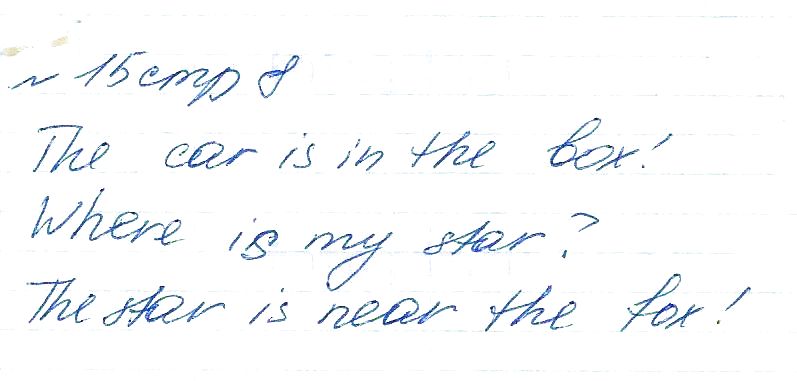 ~ 15 стр 8
The car is in the box!
Where is my star?
The star is near the fox!